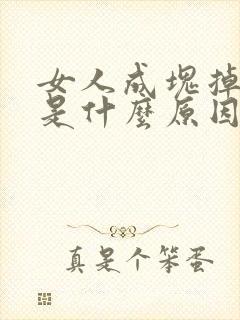 女人成塊掉
是什麼原因
真是个笨蛋